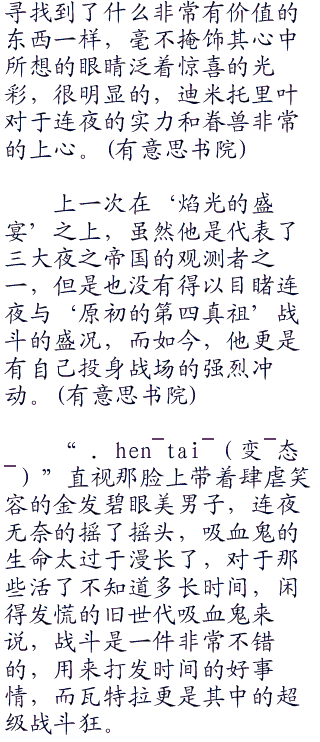 寻找到了什么非常有价值的
东西一样，毫不掩饰其心中
所想的眼睛泛着惊喜的光
彩，很明显的，迪米托里叶
对于连夜的实力和眷兽非常
的上心。(有意思书院)
上一次在‘焰光的盛
宴’之上，虽然他是代表了
三大夜之帝国的观测者之
一，但是也没有得以目睹连
夜与‘原初的第四真祖’战
斗的盛况，而如今，他更是
有自己投身战场的强烈冲
动。(有意思书院)
“．hen¯tai¯（变¯态
¯）”直视那脸上带着肆虐笑
容的金发碧眼美男子，连夜
无奈的摇了摇头，吸血鬼的
生命太过于漫长了，对于那
些活了不知道多长时间，闲
得发慌的旧世代吸血鬼来
说，战斗是一件非常不错
的，用来打发时间的好事
情，而瓦特拉更是其中的超
级战斗狂。